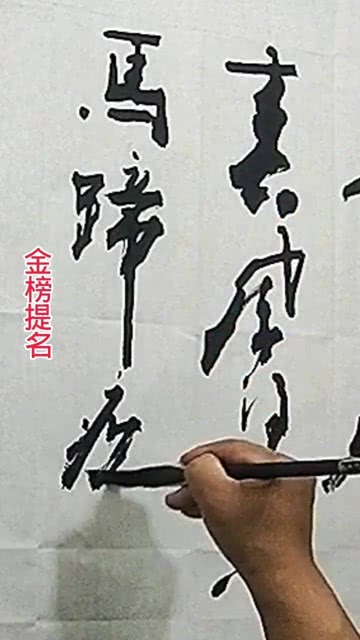 春風
馬蹄
金榜提名